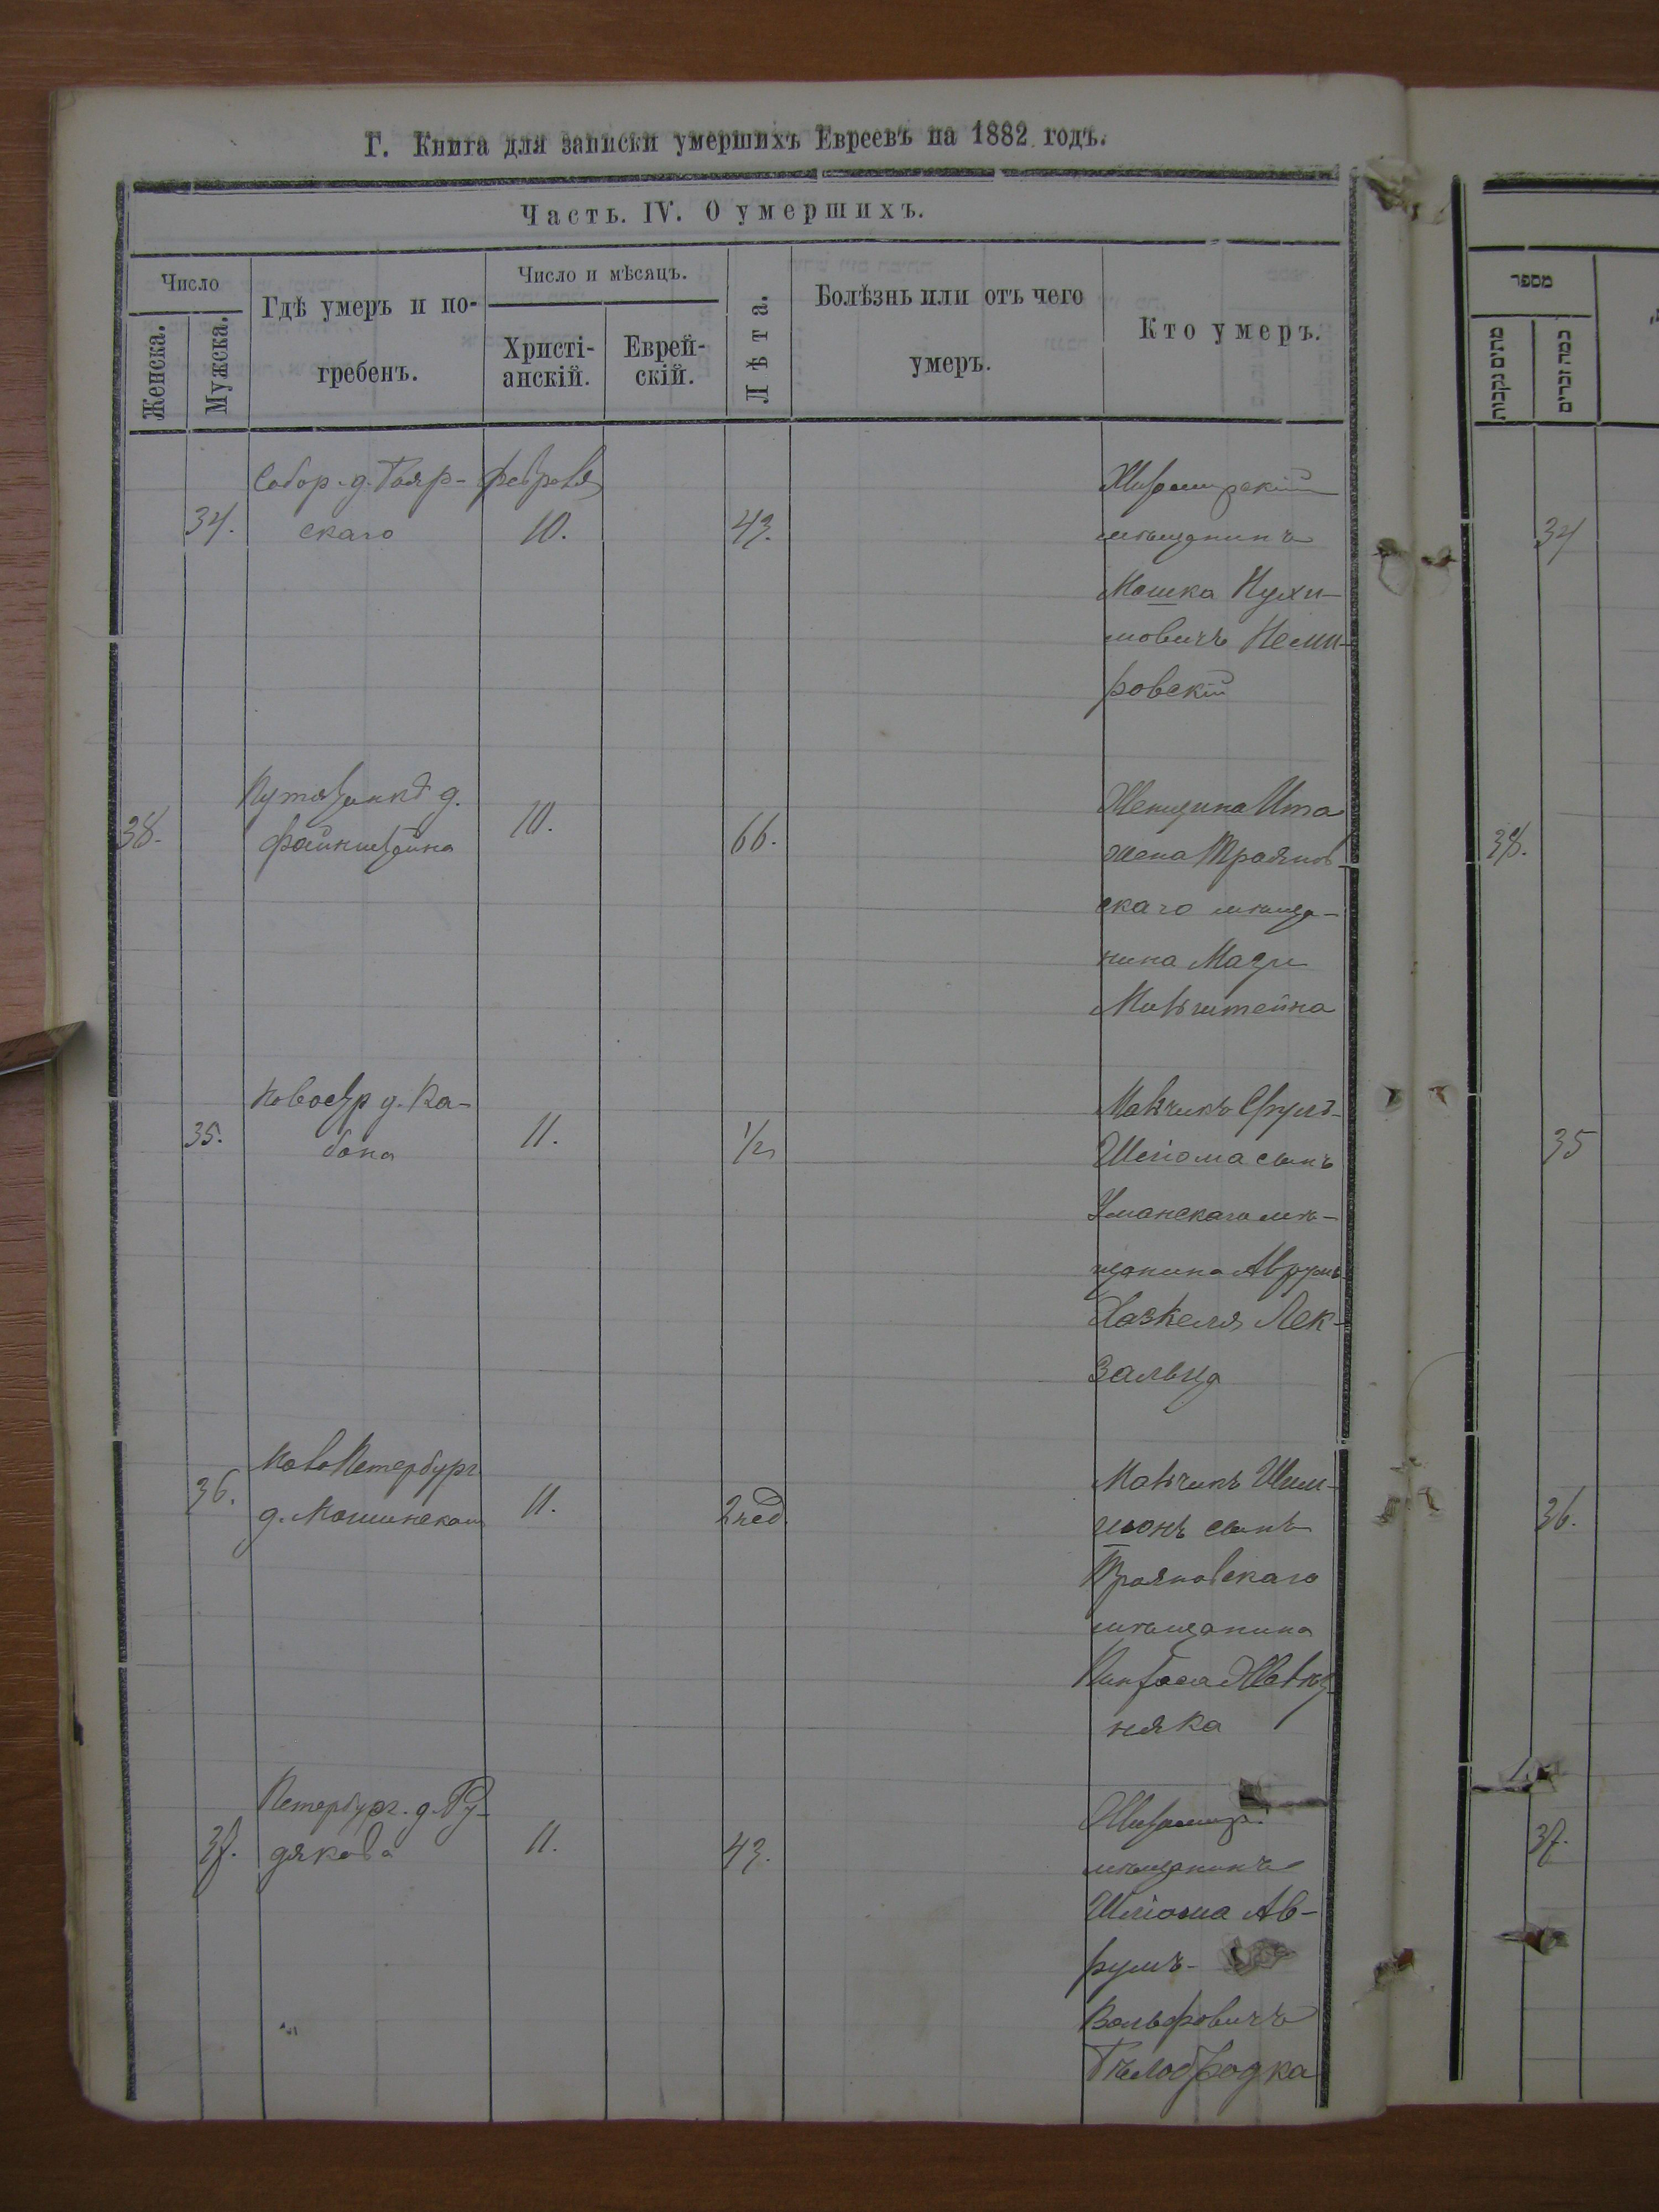 Г. Книга для записки умершихъ Евреевъ на 1882 годъ.
Часть. IV. О умершихъ.
Число
Женска.
Мужска.
Гдѣ умеръ и по-
гребенъ.
Число и мѣсяцъ.
Христі-
анскій.
Еврей-
скій.
Лѣта.
Болѣзнь или отъ чего
умеръ.
Кто умеръ.
34.
Собор. д. Бояр-
скаго
Февраля
10.
43.
Житомирскій
мѣщанинъ
Мошка Нухи-
мовичъ Неми-
ровскій
38.
д.
Файнштейна
10.
66.
Женщина Ита
жена Троянов
скаго мѣща-
нина
35.
д. Ка-
бана
11.
1/2
Мальчикъ Сруль-
Шліома сынъ
Уманскаго мѣ-
щанина Аврумъ
Хазкеля Лек-
36.
Ново Петербург.
д.
11.
2 нед.
Мальчикъ Шим-
шонъ сынъ
Трояновскаго
мѣщанина
Пинхаса
няка
37.
Петербург. д. Ру-
дякова
11.
43.
Житомир.
мѣщанинъ
Шліома Ав-
румъ-
Вольфовичъ
Бѣлобродка
מספר
מתים נקבות
כמה זכרים
34
38.
35
36.
37.